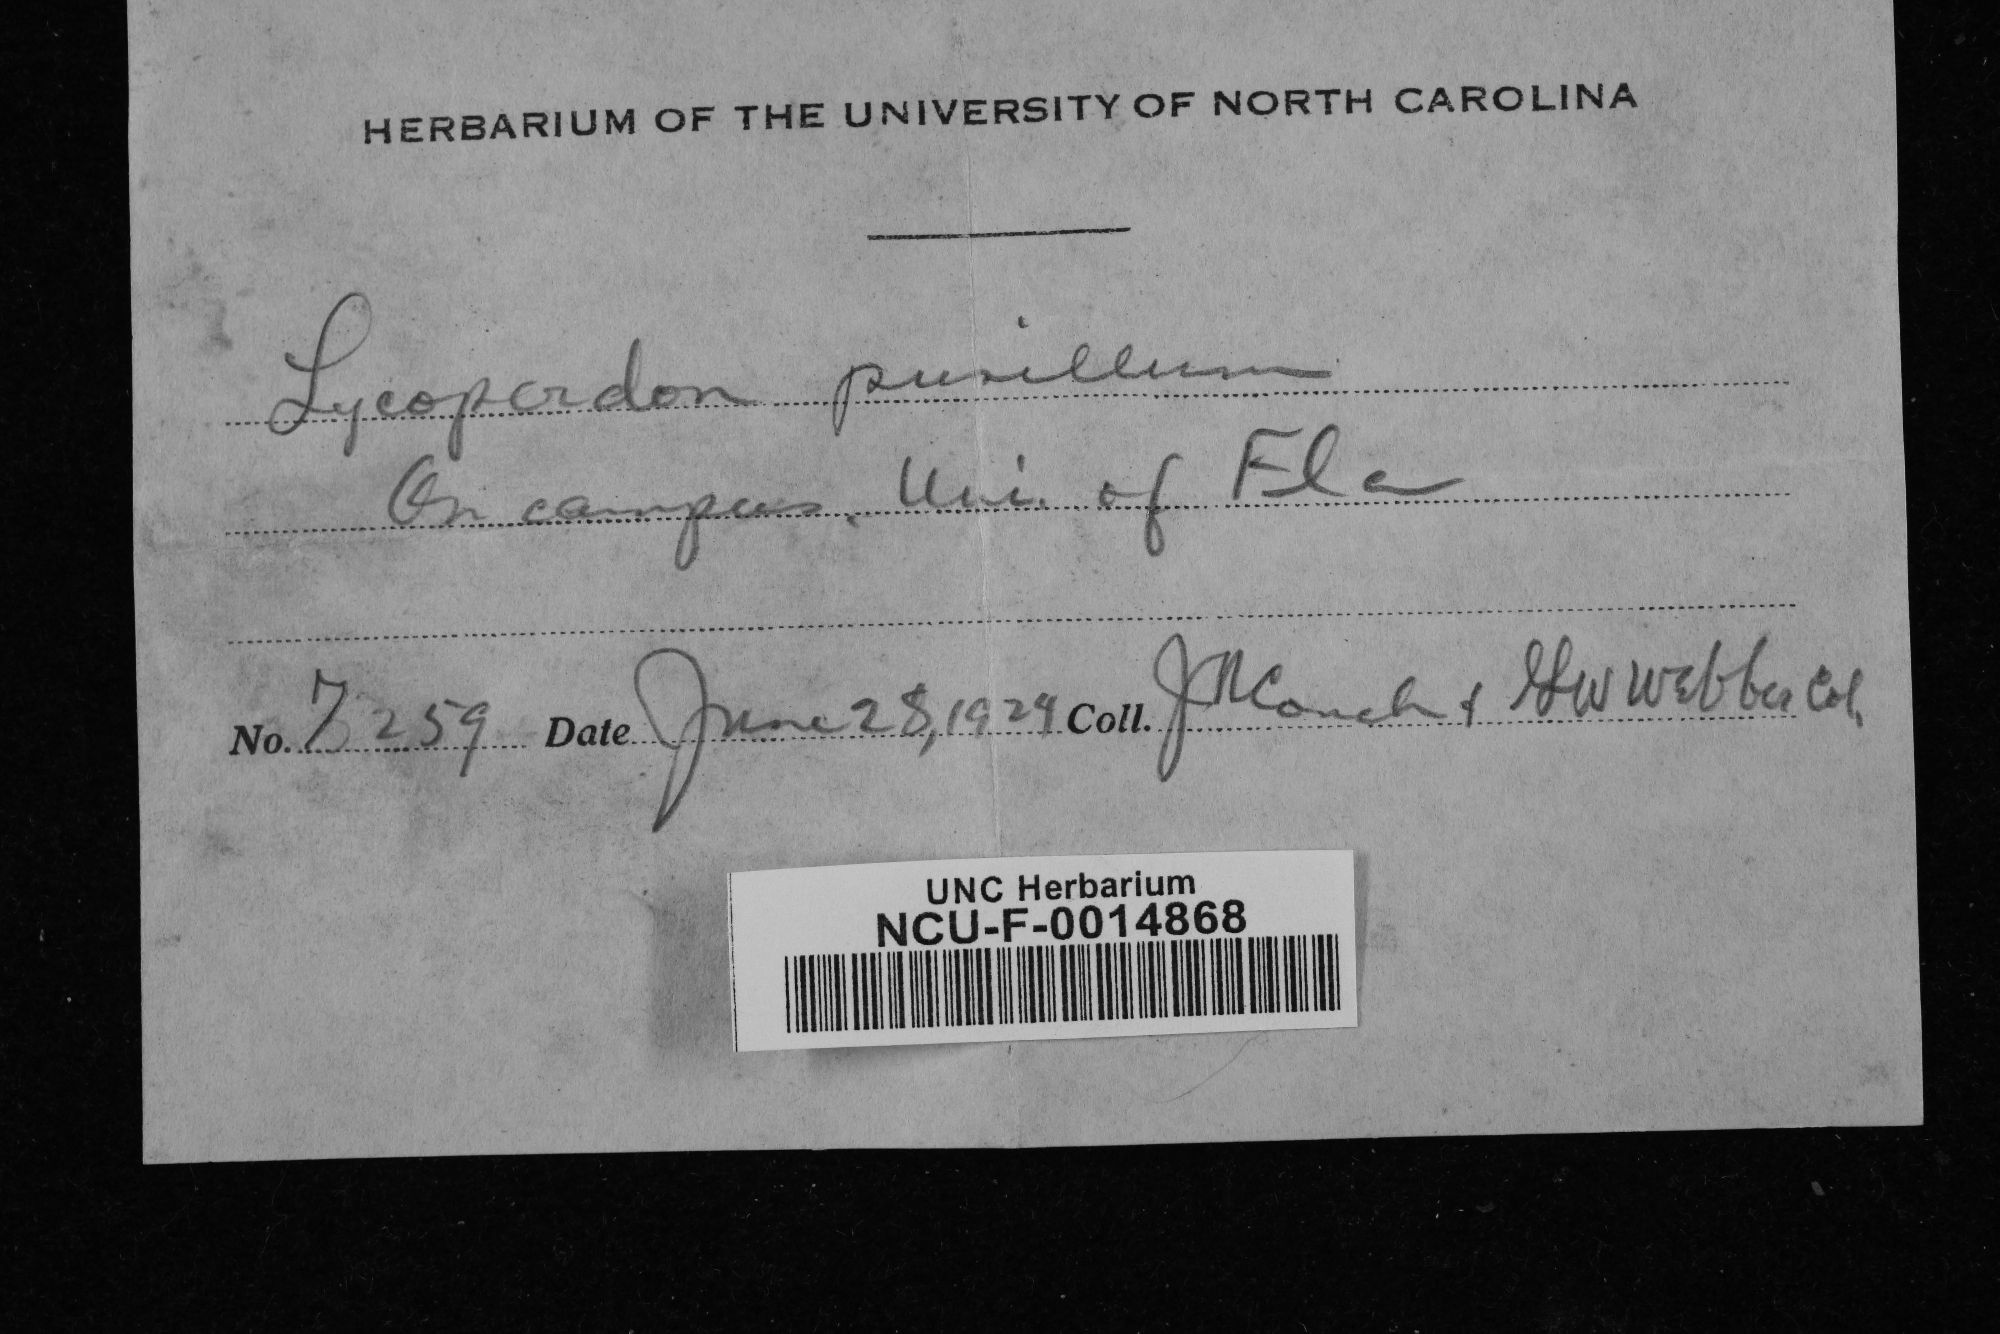 HERBARIUM OF THE UNIVERSITY OF NORTH CAROLINA
Lycoperdon pusillum
On campus. Uni. of Fla
No. 7259 Date June 28, 1924 Coll. JNCouch & GW Webber Col.
UNC Herbarium
NCU-F-0014868